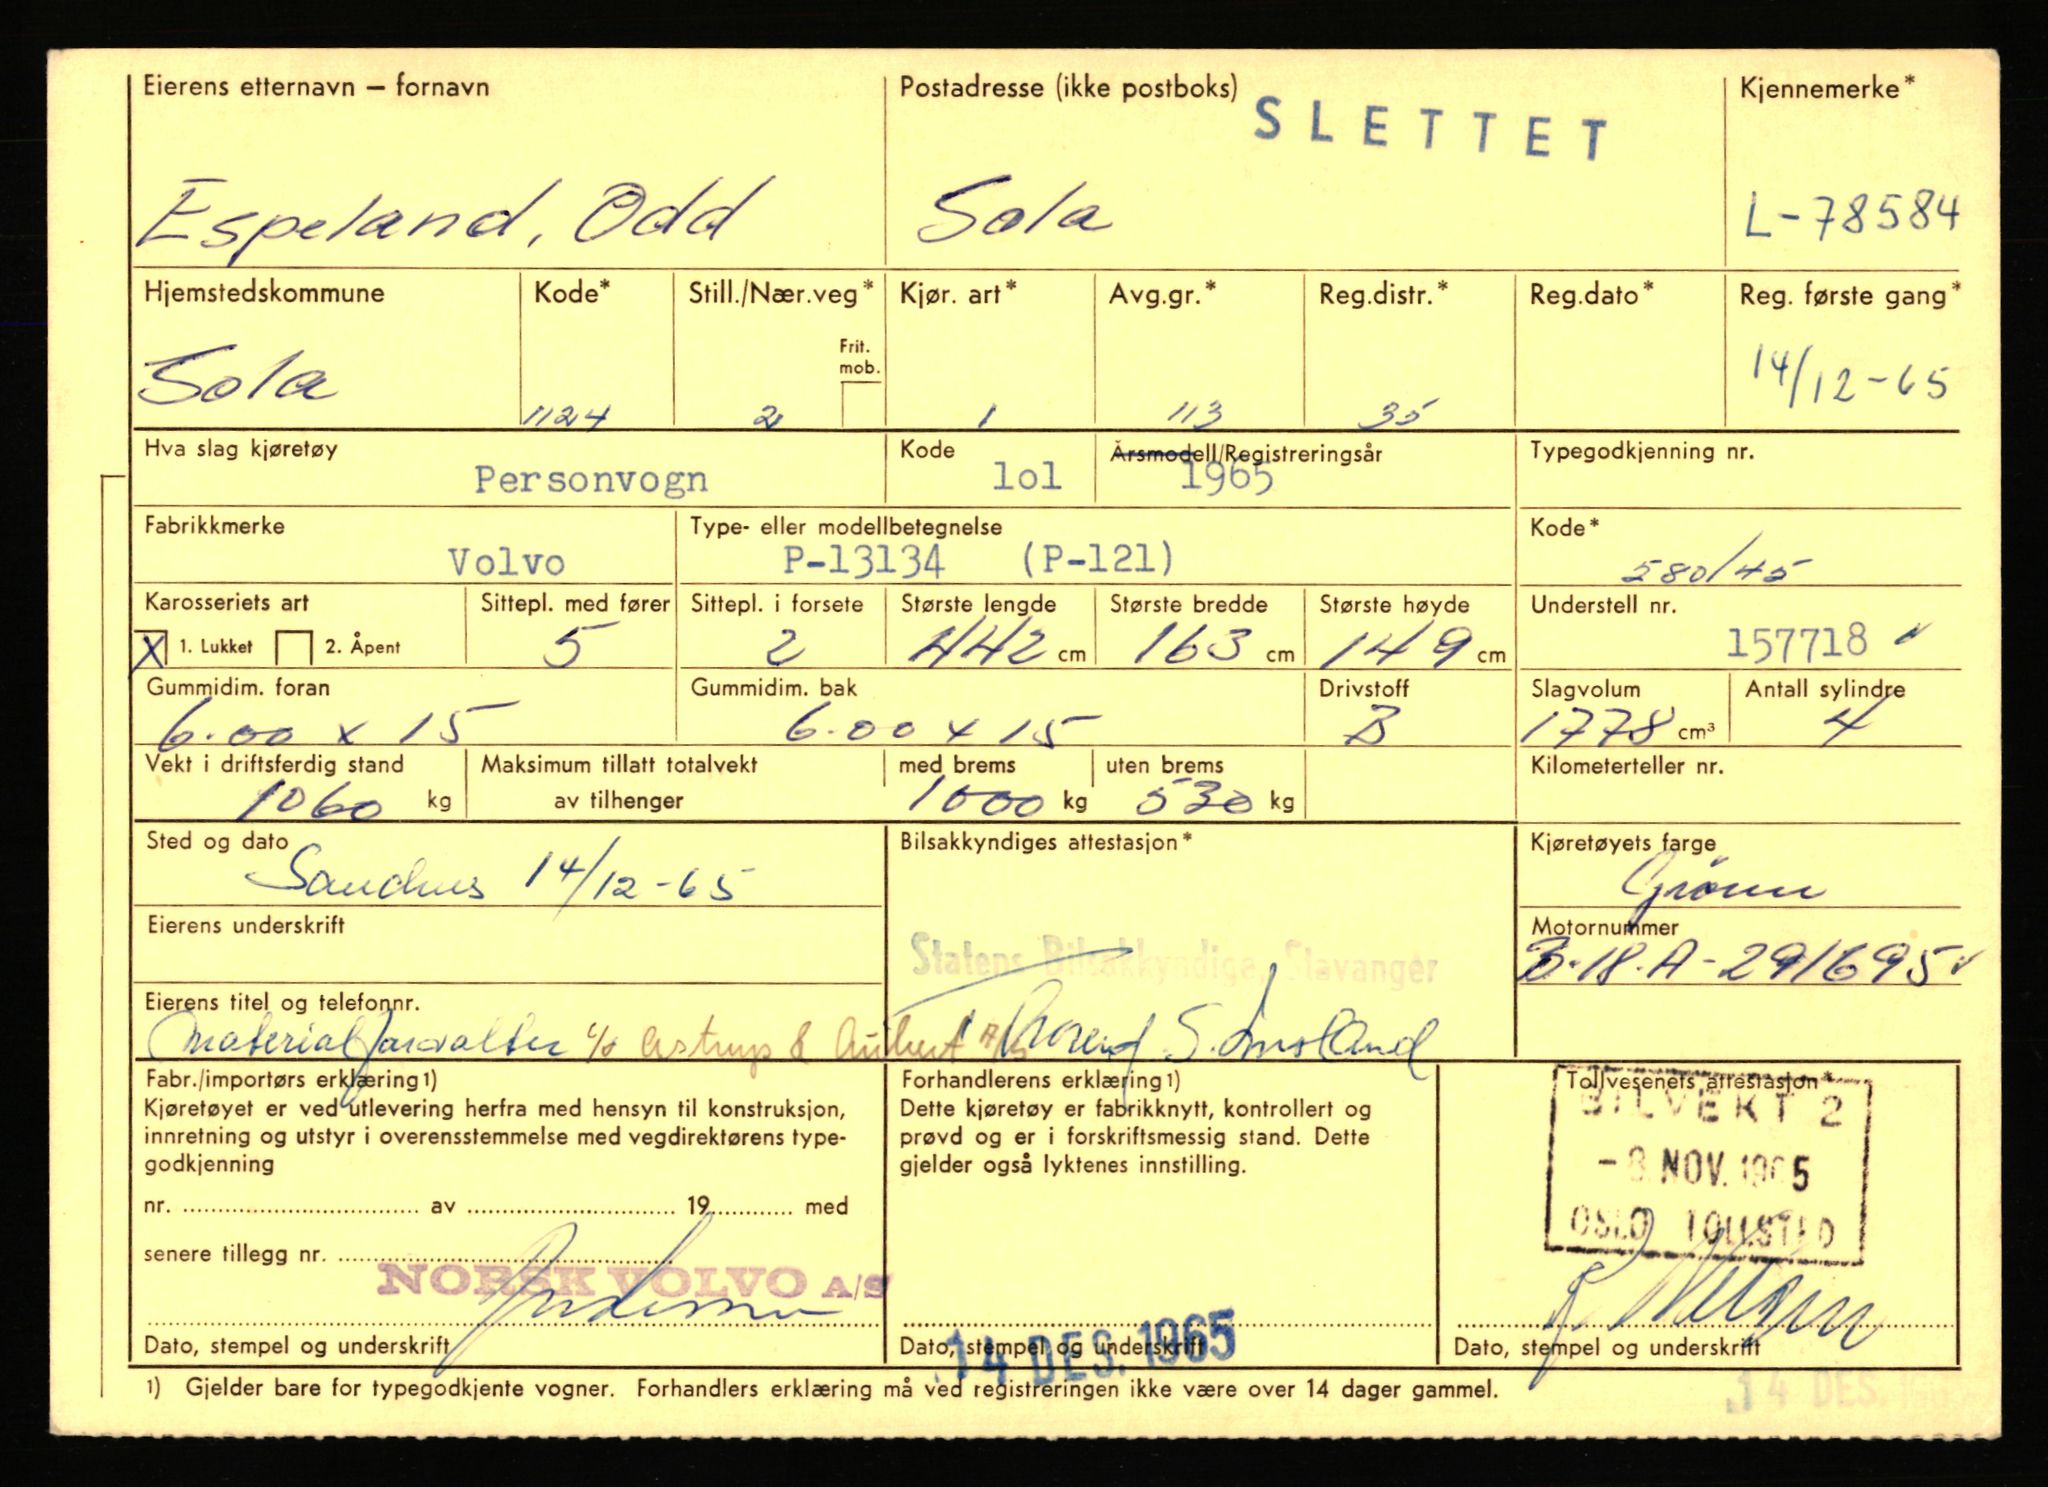 Eierens etternavn – fornavn Postadresse (ikke postboks) Kjennemerke*
SLETTET
Espeland, Odd Sola L-78584
Hjemstedskommune Kode* Still./Nær.veg* Kjør. art* Avg.gr.* Reg.distr.* Reg.dato* Reg. første gang*
Frit. mob.
Sola 1124 2 1 113 35 14/12-65
Hva slag kjøretøy Kode Årsmodell/Registreringsår Typegodkjenning nr.
Personvogn lol 1965
Fabrikkmerke Type- eller modellbetegnelse Kode*
Volvo P-13134 (P-121) 580/45
Karosseriets art Sittepl. med fører Sittepl. i forsete Største lengde Største bredde Største høyde Understell nr.
X 1. Lukket 2. Åpent 5 2 442 cm 163 cm 149 cm 157718
Gummidim. foran Gummidim. bak Drivstoff Slagvolum Antall sylindre
6.00 x 15 6.00 x 15 B 1778 cm³ 4
Vekt i driftsferdig stand Maksimum tillatt totalvekt med brems uten brems Kilometerteller nr.
1060 kg av tilhenger 1000 kg 530 kg
Sted og dato Bilsakkyndiges attestasjon* Kjøretøyets farge
Sandnes 14/12-65 Grønn
Eierens underskrift Motornummer
Statens Bilsakkyndige, Stavanger B.18.A-291695
Eierens titel og telefonnr.
Materialforvalter c/o Astrup & Aubert A/S
Fabr./importørs erklæring 1) Forhandlerens erklæring 1) Tollvesenets attestasjon*
Kjøretøyet er ved utlevering herfra med hensyn til konstruksjon, Dette kjøretøy er fabrikknytt, kontrollert og BILVEKT 2
innretning og utstyr i overensstemmelse med vegdirektørens type- prøvd og er i forskriftsmessig stand. Dette
godkjenning gjelder også lyktenes innstilling. -8. NOV. 1965
nr. av 19 med OSLO TOLLSTED
senere tillegg nr.
NORSK VOLVO A/S
Dato, stempel og underskrift Dato, stempel og underskrift Dato, stempel og underskrift
14 DES. 1965
1) Gjelder bare for typegodkjente vogner. Forhandlers erklæring må ved registreringen ikke være over 14 dager gammel.
14 DES. 196